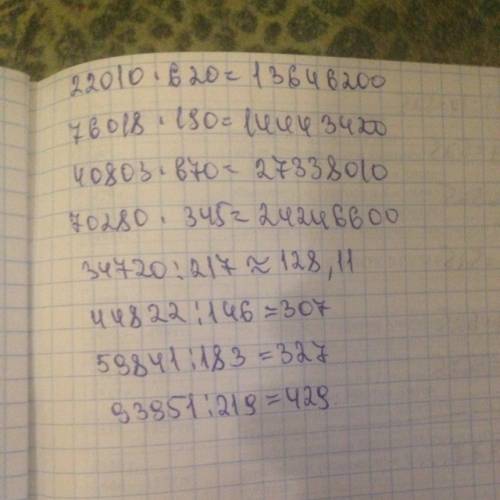 22010 · 620 = 13646200
76018 · 190 = 14443420
40803 · 670 = 27338010
70280 · 345 = 24246600
34720 : 217 ≈ 128,11
44822 : 146 = 307
59841 : 183 = 327
93951 : 219 = 429